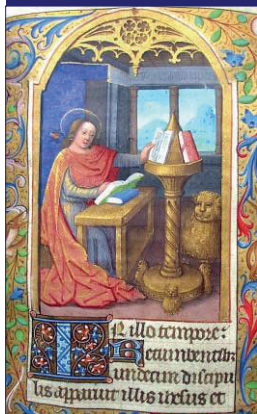 IN illo tempore:
Recumbentib
undecim discipu
lis apparuit illis ihesus et